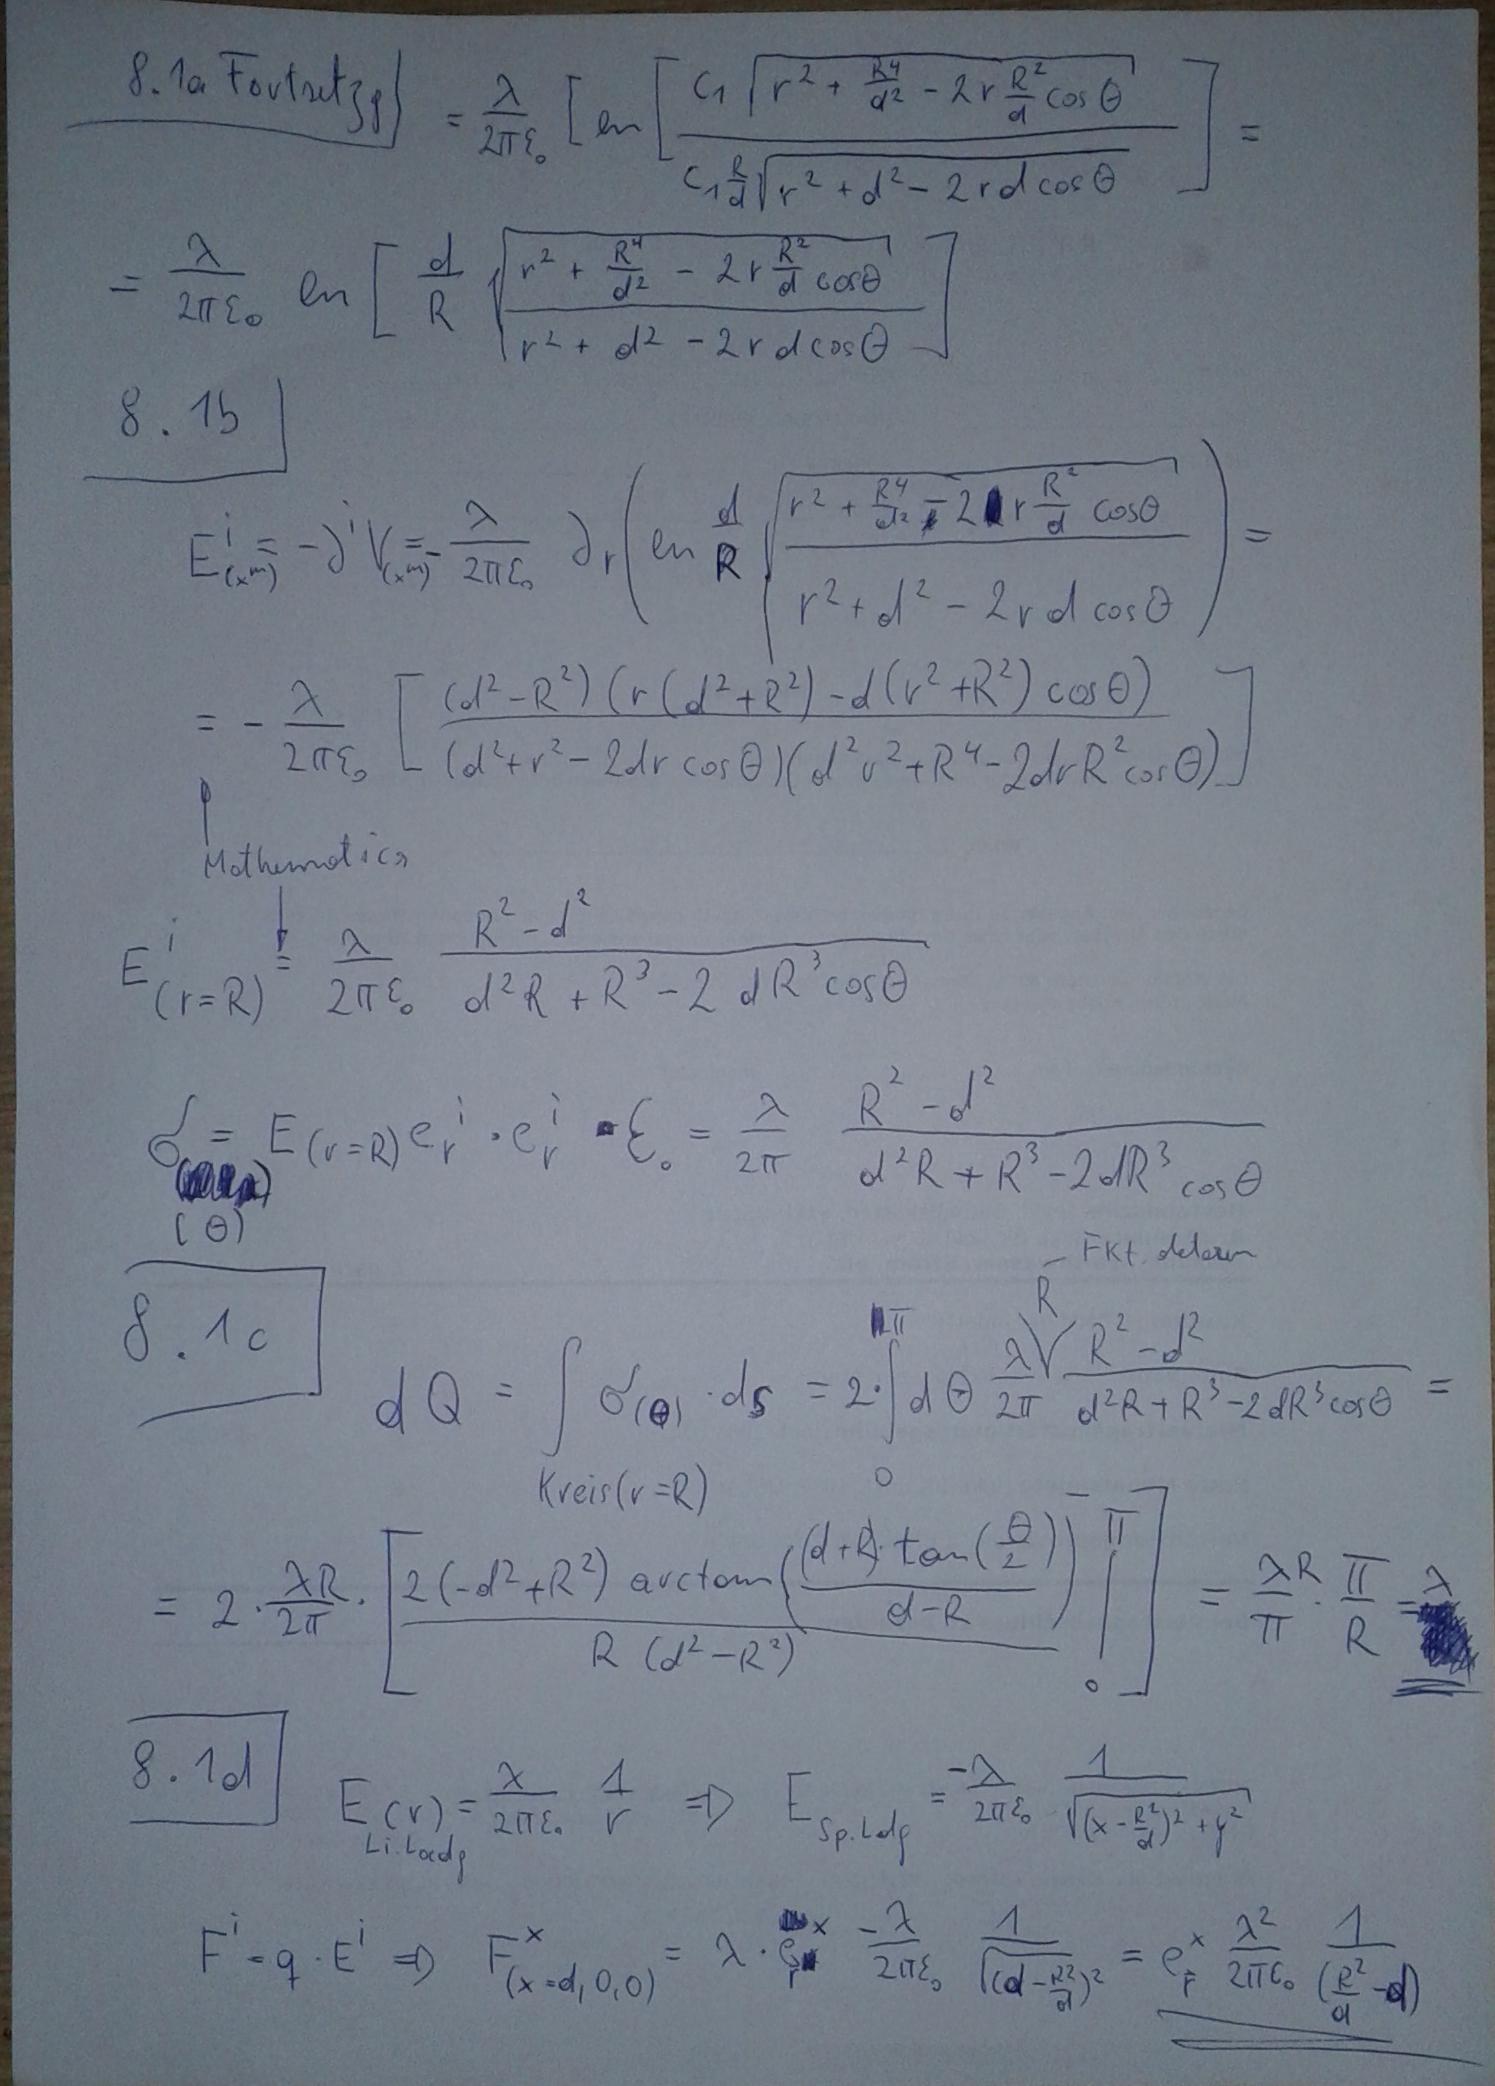 8.1a Fortsetzg = λ/2πε₀ [ln [ C₁ √(r² + R⁴/d² - 2r R²/d cos θ) / C₁ R/d √(r² + d² - 2rd cos θ) ] =
= λ/2πε₀ ln [ d/R √( (r² + R⁴/d² - 2r R²/d cosθ) / (r² + d² - 2rd cosθ) ) ]
8.1b
Eⁱ(xᵐ) = -∂ⁱ V(xᵐ) = - λ/2πε₀ ∂r ( ln d/R √( (r² + R⁴/d² - 2 r R²/d cosθ) / (r² + d² - 2rd cosθ) ) ) =
= - λ/2πε₀ [ (d²-R²)(r(d²+R²) - d(r²+R²) cosθ) / (d²+r²-2dr cosθ)(d²r²+R⁴-2drR² cosθ) ]
Mathematica
Eⁱ(r=R) = λ/2πε₀ (R²-d²) / (d²R + R³ - 2 dR³ cosθ)
σ(θ) = E(r=R) eᵣⁱ · eᵣⁱ · ε₀ = λ/2π (R²-d²) / (d²R + R³ - 2dR³ cosθ)
R - Fkt. determ
8.1c
dQ = ∫ σ(θ) · ds = 2·∫ dθ λ/2π (R²-d²) / (d²R + R³ - 2dR³ cosθ) =
Kreis(r=R) 0 π
= 2 · λR/2π · [ 2(-d²+R²) arctan( (d+R)· tan(θ/2) / (d-R) ) / R (d²-R²) |₀^π ] = λR/π · π/R = λ
8.1d E(r) Li.Ladg = λ/2πε₀ 1/r ⇒ E Sp.Ldg = -λ/2πε₀ 1/√((x-R²/d)²+y²)
Fⁱ = q · Eⁱ ⇒ Fˣ(x=d,0,0) = λ · eᵣˣ -λ/2πε₀ 1/√(d-R²/d)² = eᵣˣ λ²/2πε₀ 1/(R²/d - d)